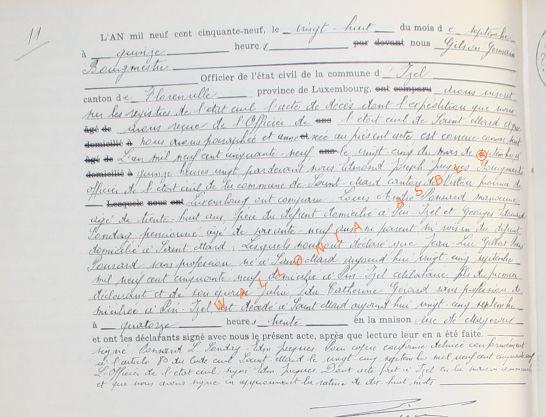 11
L'AN mil neuf cent cinquante-neuf, le vingt-huit du mois de septembre
à quinze heures par devant nous Gilson Germain
Bourgmestre
Officier de l'état civil de la commune d'Izel
canton de Florenville province de Luxembourg, ont comparu avons inscrit
sur les registres de l'état civil l'acte de décès dont l'expédition que nous
âgé de avons reçue de l'Officier de ans l'état civil de Saint-Mard et que
domicilié à nous avons paraphée et annexée au présent acte est conçue comme suit
âgé de L'an mil neuf cent cinquante neuf ans le vingt cinq du mois de septembre à
domicilié à quinze heures vingt pardevant nous Edmond Joseph Jacques Bourgmestre
officier de l'état civil de la commune de Saint-Mard canton de Virton province de
Lesquels nous ont Luxembourg ont comparu Louis Ponsard manœuvre
âgé de trente huit ans, père du défunt domicilié à Pin Izel et Georges
Landry pensionné âgé de soixante neuf ans non parent ni voisin du défunt
domicilié à Saint-Mard, lesquels nous ont déclaré que Jean Luc Gilbert
Ponsard sans profession né à Saint-Mard aujourd'hui vingt cinq septembre
mil neuf cent cinquante neuf domicilié à Pin Izel célibataire fils du premier
déclarant et de son épouse Julia Catherine Gérard sans profession do-
miciliée à Pin Izel est décédé à Saint-Mard aujourd'hui vingt cinq septembre
à quatorze heures trente en la maison rue de
et ont les déclarants signé avec nous le présent acte, après que lecture leur en a été faite.
signé Ponsard L Landry Edm Jacques Pour copie conforme délivrée conformément
à l'article du Code civil Saint-Mard le vingt cinq septembre mil neuf cent cinquante neuf
L'Officier de l'état civil signé Edm Jacques Dont acte fait à Izel en la maison communale
et que nous avons signé en approuvant la rature de dix huit mots
WALLONIA ASBL ®